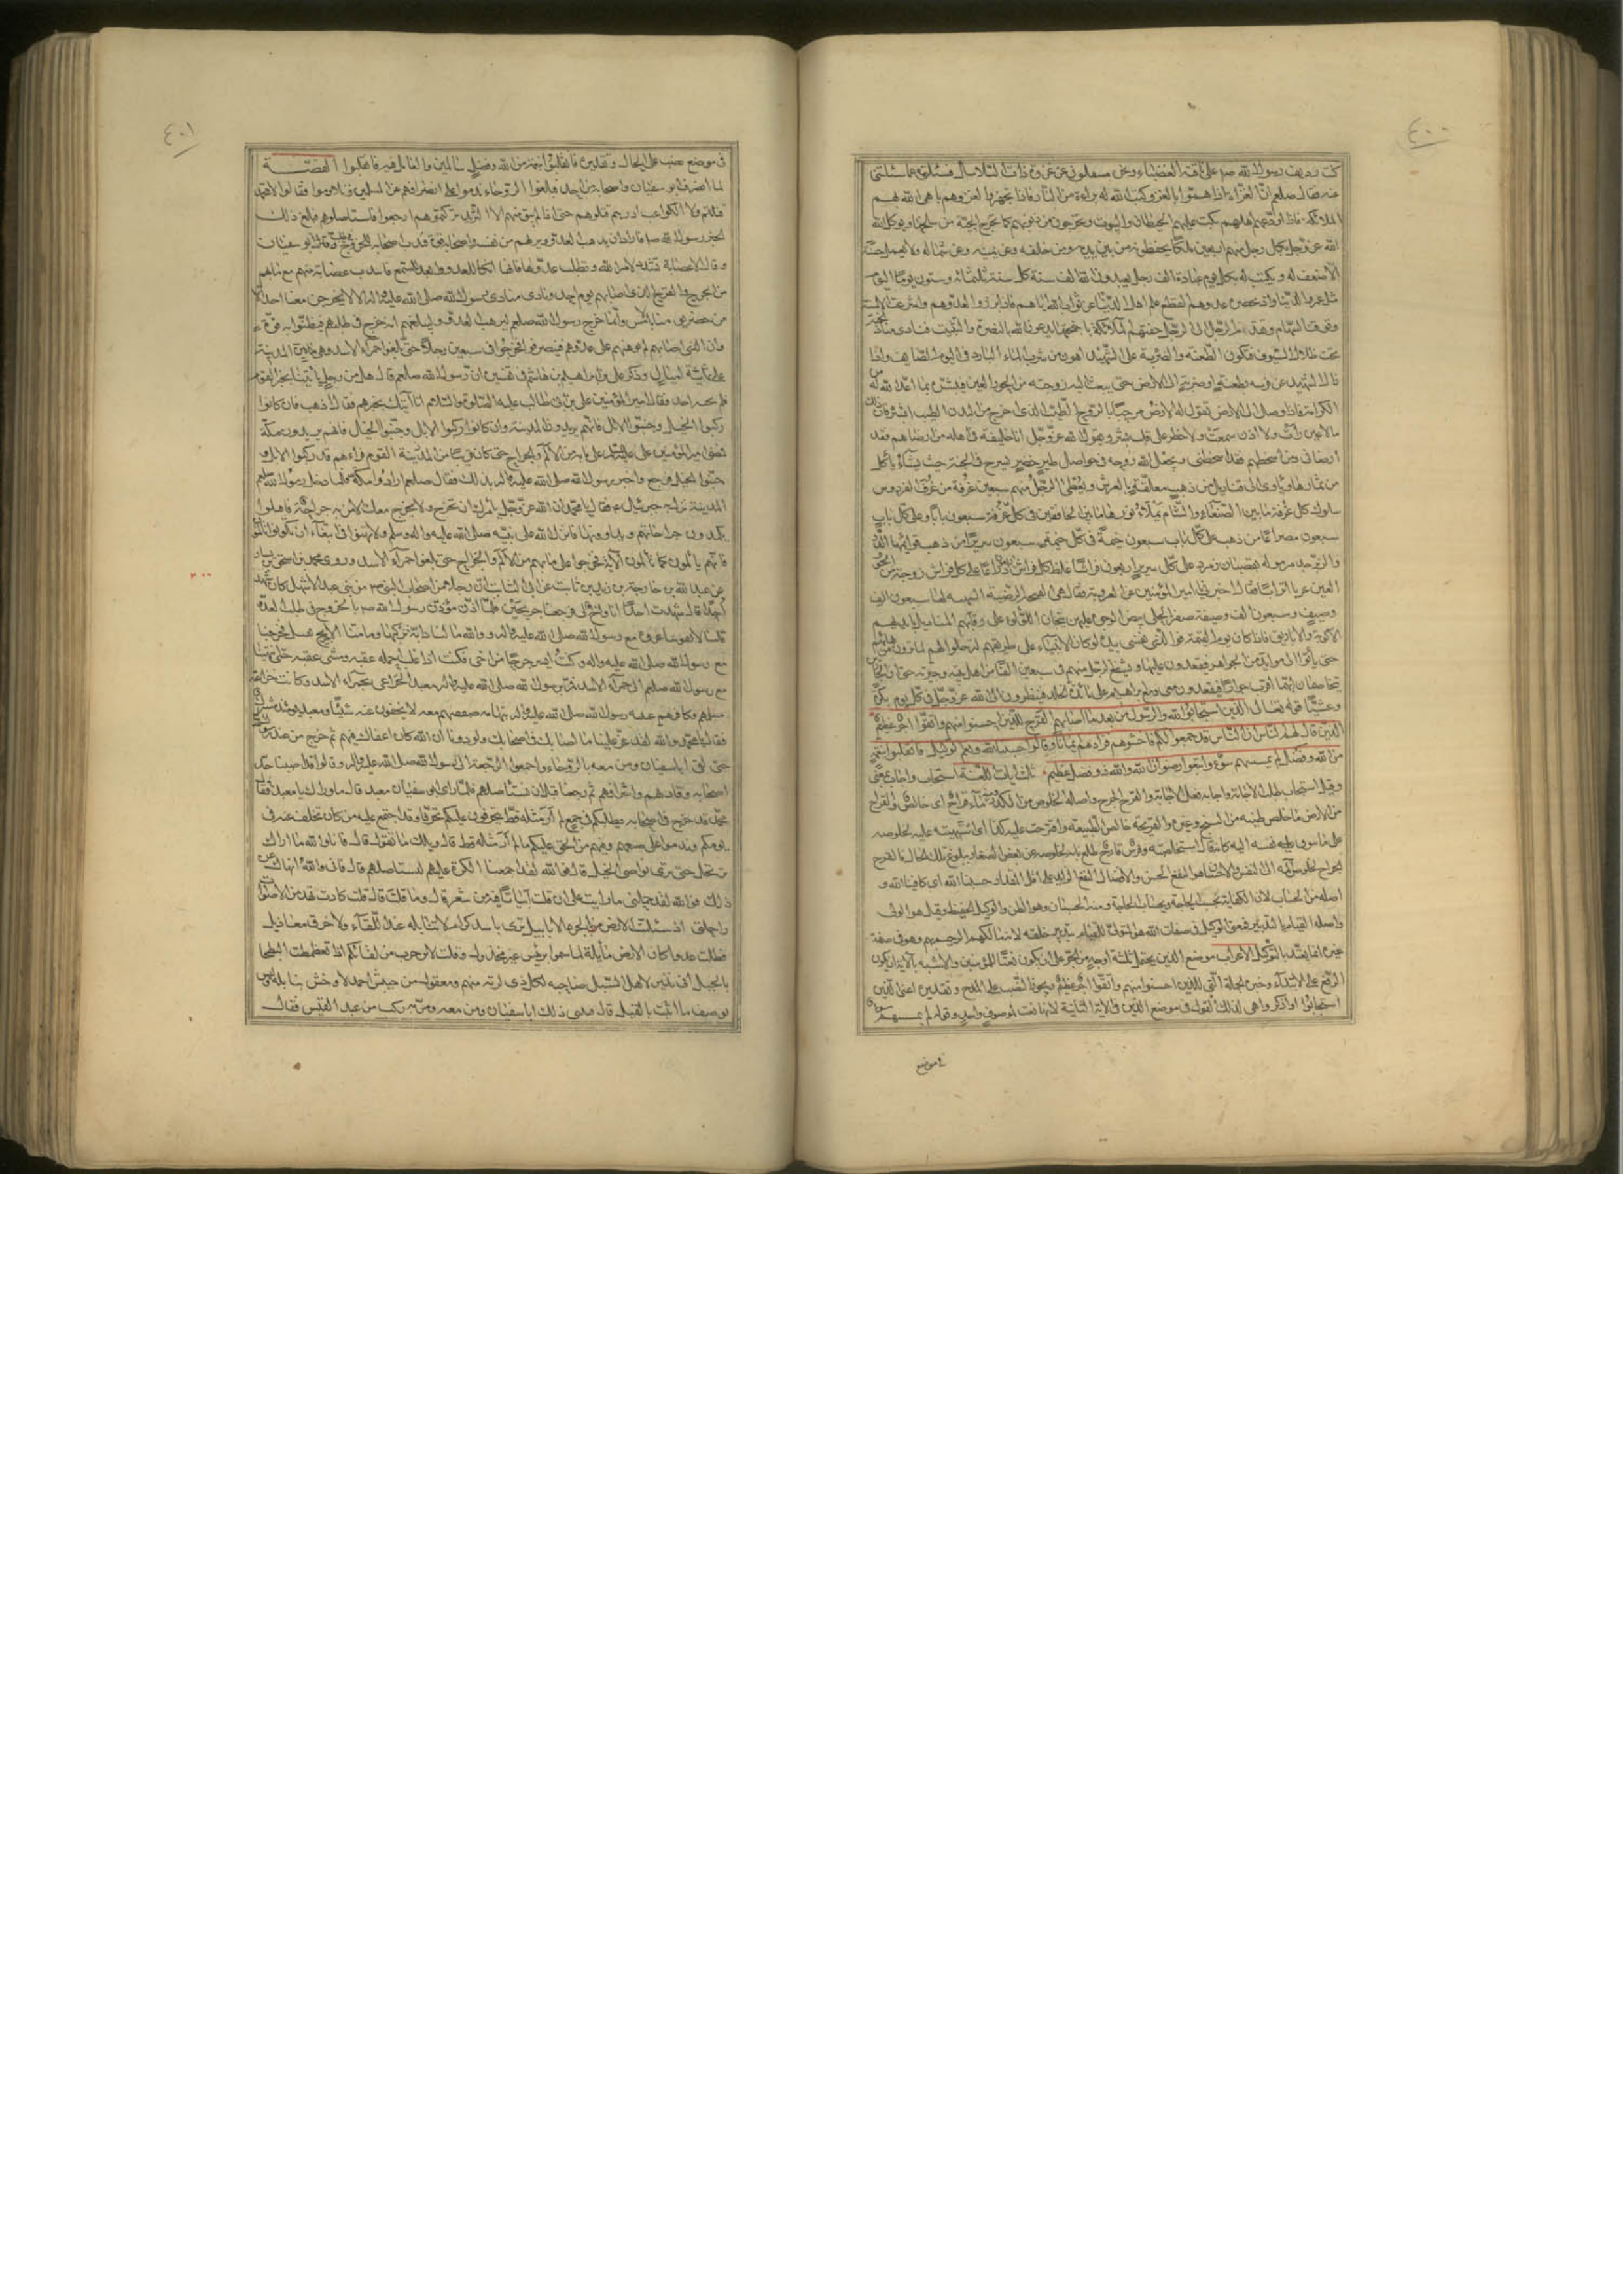 ٤٠٠
كنت رديف رسول الله صم على ناقته العضباء ونحن منقلبون عن غزوة ذات السلاسل فسئلته عما سئلتنى
عنه فقال صلعم ان الغزاة اذا هموا بالغزو كتب الله له براءة من النار فاذا تجهزوا لغزوهم باهى الله بهم
الملائكة فاذا ودعهم اهلوهم بكت عليهم الحيطان والبيوت ويخرجون من ذنوبهم كما تخرج الحية من سلخها ويوكل الله
الله عز وجل بكل رجل منهم اربعين ملكا يحفظونه من بين يديه ومن خلفه وعن يمينه وعن شماله ولا يعمل حسنة
الا ضعف له و يكتب له بكل يوم عبادة الف رجل يعبدون الله الف سنة كل سنة ثلثمائة وستون يوما اليوم
مثل عمر الدنيا واذا بحضرة عدوهم انقطع علم اهل الدنيا عن ثواب الله اياهم فاذا برزوا لعدوهم واشرعت الاسنة
وفوقت السهام وتقدم الرجل الى الرجل حفتهم الملائكة باجنحتها يدعون الله بالنصرة والتثبيت فنادى مناد الجنة
تحت ظلال السيوف فتكون الطعنة والضربة على الشهيد اهون من شرب الماء البارد فى اليوم الصايف واذا
زال الشهيد عن فرسه بطعنة او ضربة لم يصل الى الارض حتى يبعث اليه زوجته من الحور العين فتبشره بما اعد الله له من
الكرامة فاذا وصل الى الارض تقول له الارض مرحبا بالروح الطيب الذى اخرج من البدن الطيب ابشر فان لك
ما لا عين رأت ولا اذن سمعت ولا خطر على قلب بشر ويقول الله عز وجل انا خليفته فى اهله من ارضاهم فقد
ارضانى ومن اسخطهم فقد اسخطنى ويجعل الله روحه فى حواصل طير خضر تسرح فى الجنة حيث يشاء يأكل
من ثمارها وياوى الى قناديل من ذهب معلقة بالعرش ويعطى الرجل منهم سبعين غرفة من غرف الفردوس
سلوك كل غرفة ما بين الصنعاء والشام يملأ نورها ما بين الخافقين فى كل غرفة سبعون بابا وعلى كل باب
سبعون مصراعا من ذهب على كل باب سبعون خيمة فى كل خيمة سبعون سريرا من ذهب قوايمها الدر
والزبرجد مرموله بقضبان زمرد على كل سرير اربعون فراشا غلظ كل فراش اربعون ذراعا على كل فراش زوجة من الحور
العين عربا اترابا فقال اخبرنى يا امير المؤمنين عن العروبة فقال هى الغنجة الرضية الشهية لها سبعون الف
وصيف وسبعون الف وصيفة صفر الحلى بيض الوجوه عليهن تيجان اللؤلؤ على رقابهم المناديل بايديهم
الاكوبة والاباريق فاذا كان يوم القيمة فوالذى نفسى بيده لو كان الانبياء على طريقهم لترجلوا لهم لما يرون من بهائهم
حتى ياتوا الى موايد من الجواهر فيقعدون عليها ويشفع الرجل منهم فى سبعين الفا من اهل بيته وجيرته حتى ان الجارين
يتخاصمان ايهما اقرب جوارا فيقعدون معى ومع ابراهيم على مائدة الخلد فينظرون الى الله عز وجل فى كل يوم بكرة
وعشيا قوله تعالى الذين استجابوا لله والرسول من بعد ما اصابهم القرح للذين احسنوا منهم واتقوا اجر عظيم
الذين قال لهم الناس ان الناس قد جمعوا لكم فاخشوهم فزادهم ايمانا وقالوا حسبنا الله ونعم الوكيل فانقلبوا بنعمة
من الله وفضل لم يمسسهم سوء واتبعوا رضوان الله والله ذو فضل عظيم ثلث ايات اللغة استجاب واجاب بمعنى
وقيل استجاب طلب الاجابة واجاب فعل الاجابة والقرح الجرح واصله الخلوص من الكدر ومنه ماء قراح اى خالص والقراح
من الارض ما خلص طينه من السبخ وغيره والقريحة خالص الطبيعة واقترحت عليه كذا اى اشتهيته عليه لخلوصه
على ما سواه عليه نفسه اليه كانه قال استخلصته وفرس قارح طلع نابه لخلوصه عن نقص الصغار ببلوغ تلك الحال فالقرح
الجراح لخلوص المه الى النفس والاحسان هو النفع الحسن والافضال النفع الزايد على اقل المقدار حسبنا الله اى كافينا الله و
اصله من الحساب لان الكفاية بحسب الحاجة وبحساب الحاجة ومنه الحسبان وهو الظن والوكيل الحفيظ وقيل هو الولى
واصله القيام بالتدبير فمعنى الوكيل فى صفات الله هو المتولى للقيام بتدبير خلقه لانه مالكهم الرحيم بهم وهو فى صفة
غيره انما يعقد بالتوكيل الاعراب موضع الذين يحتمل ثلثة اوجه من الجر على ان يكون نعتا للمؤمنين والاشبه بالآية ان يكون
الرفع على الابتداء وخبره الجملة التى للذين احسنوا منهم واتقوا اجر عظيم ويجوز النصب على المدح وتقديره اعنى الذين
استجابوا او اذكر واهى لذلك القول فى موضع الذين فى الاية الثانية لانها نعت لموصوف واحد وقوله لم يمسسهم سوء
فى موضع
٤٠١
فى موضع نصب على الحال وتقديره فانقلبوا بنعمة من الله وفضل سالمين والعامل فيه فانقلبوا القصة
لما انصرف ابو سفيان واصحابه من احد فبلغوا الروحاء ندموا على انصرافهم عن المسلمين وتلاوموا فقالوا لا محمدا
قتلتم ولا الكواعب اردفتم قتلوهم حتى اذا لم يبق منهم الا الشريد تركتموهم ارجعوا فاستاصلوهم فبلغ ذلك
الخبر رسول الله صم فاراد ان يرهب العدو ويريهم من نفسه واصحابه قوة فندب اصحابه للخروج فى طلب ابى سفيان
وقال الا عصابة تشدد لامر الله وتطلب عدوها فانها انكأ للعدو وابعد للسمع فانتدب عصابة منهم مع ما بهم
من الجرح والقرح الذى اصابهم يوم احد ونادى منادى رسول الله صلى الله عليه واله الا لا يخرجن معنا احد الا
من حضر يومنا بالامس وانما خرج رسول الله صلعم ليرهب العدو وليبلغهم انه خرج فى طلبهم فيظنوا به قوة
وان الذى اصابهم لم يوهنهم على عدوهم فينصرفوا فخرجوا فى سبعين رجلا حتى بلغوا حمراء الاسد وهى من المدينة
على ثمانية اميال وذكر على بن ابراهيم بن هاشم فى تفسيره ان رسول الله صلعم قال هل من رجل ياتينا بخبر القوم
فلم يجبه احد فقال امير المؤمنين على بن ابى طالب عليه الصلوة والسلام انا آتيك بخبرهم فقال اذهب فان كانوا
ركبوا الخيل وجنبوا الابل فانهم يريدون المدينة وان كانوا ركبوا الابل وجنبوا الخيل فانهم يريدون مكة
فمضى امير المؤمنين على عليه السلام على ما به من الالم والجراح حتى كان قريبا من المدينة القوم فرآهم قد ركبوا الابل و
جنبوا الخيل فرجع واخبر رسول الله صلى الله عليه واله بذلك فقال صلعم ارادوا مكة فلما دخل رسول الله صلعم
المدينة نزل جبرئيل ع فقال يا محمد ان الله عز وجل يأمرك ان تخرج ولا يخرج معك الا من به جراحة فاقبلوا
يكمدون جراحاتهم ويداوونها فانزل الله على نبيه صلى الله عليه واله وسلم ولا تهنوا فى ابتغاء القوم ان تكونوا تألمون
فانهم يألمون كما تألمون الآية فخرجوا على ما بهم من الالم والجراح حتى بلغوا حمراء الاسد وروى محمد بن اسحق بن يسار
عن عبد الله بن خارجة بن زيد بن ثابت عن ابى السائب ان رجلا من اصحاب النبى ص من بنى عبد الاشهل كان شهد
احدا قال شهدت احدا انا واخ لى فرجعنا جريحين فلما اذن مؤذن رسول الله صم بالخروج فى طلب العدو
قلنا لا تفوتنا غزوة مع رسول الله صلى الله عليه واله والله ما لنا دابة نركبها وما منا الا جريح ثقيل فخرجنا
مع رسول الله صلى الله عليه واله وكنت ايسر جرحا من اخى فكنت اذا غلب حملته عقبة ومشى عقبة حتى انتهينا
مع رسول الله صلعم الى حمراء الاسد فمر برسول الله صلى الله عليه واله معبد الخزاعى بحمراء الاسد وكانت خزاعة
مسلمهم وكافرهم عيبة رسول الله صلى الله عليه واله بتهامة صفقتهم معه لا يخفون عنه شيئا ومعبد يومئذ مشرك
فقال يا محمد والله لقد عز علينا ما اصابك فى اصحابك ولوددنا ان الله كان اعفاك فيهم ثم خرج من عند رسول الله
حتى لقى ابا سفيان ومن معه بالروحاء واجمعوا الرجعة الى رسول الله صلى الله عليه واله وقالوا قد اصبنا حد
اصحابه وقادتهم واشرافهم ثم رجعنا قبل ان نستاصلهم فلما راى ابو سفيان معبد قال ما وراك يا معبد فقال
محمد قد خرج فى اصحابه يطلبكم فى جمع لم ار مثله قط يتحرقون عليكم تحرقا وقد اجتمع عليه من كان تخلف عنه فى
يومكم وندموا على صنيعهم وفيهم من الحنق عليكم ما لم ار مثله قط قال ويلك ما تقول قال فانا والله ما اراك
ترتحل حتى ترى نواصى الخيل قال فوالله لقد اجمعنا الكرة عليهم لنستاصلهم قال فانى والله انهاك عن
ذلك فوالله لقد حملنى ما رايت على ان قلت ابياتا فيه من شعر قال وما قلت قال قلت كادت تهد من الاصوات
راحلتى اذ سالت الارض بالجرد الابابيل تردى باسد كرام لا تنابلة عند اللقاء ولا خرق معازيل
فظلت عدوا كان الارض مايلة لما سموا برئيس غير مخذول وقلت لابن حرب من لقائكم اذا تغطمطت البطحا
بالجيل انى نذير لاهل السيل ضاحية لكل ذى اربة منهم ومعقول من جيش احمد لا وخش تنابلة وليس
يوصف ما اثبت بالقيل قال فثنى ذلك ابا سفيان ومن معه ومر به ركب من عبد القيس فقال